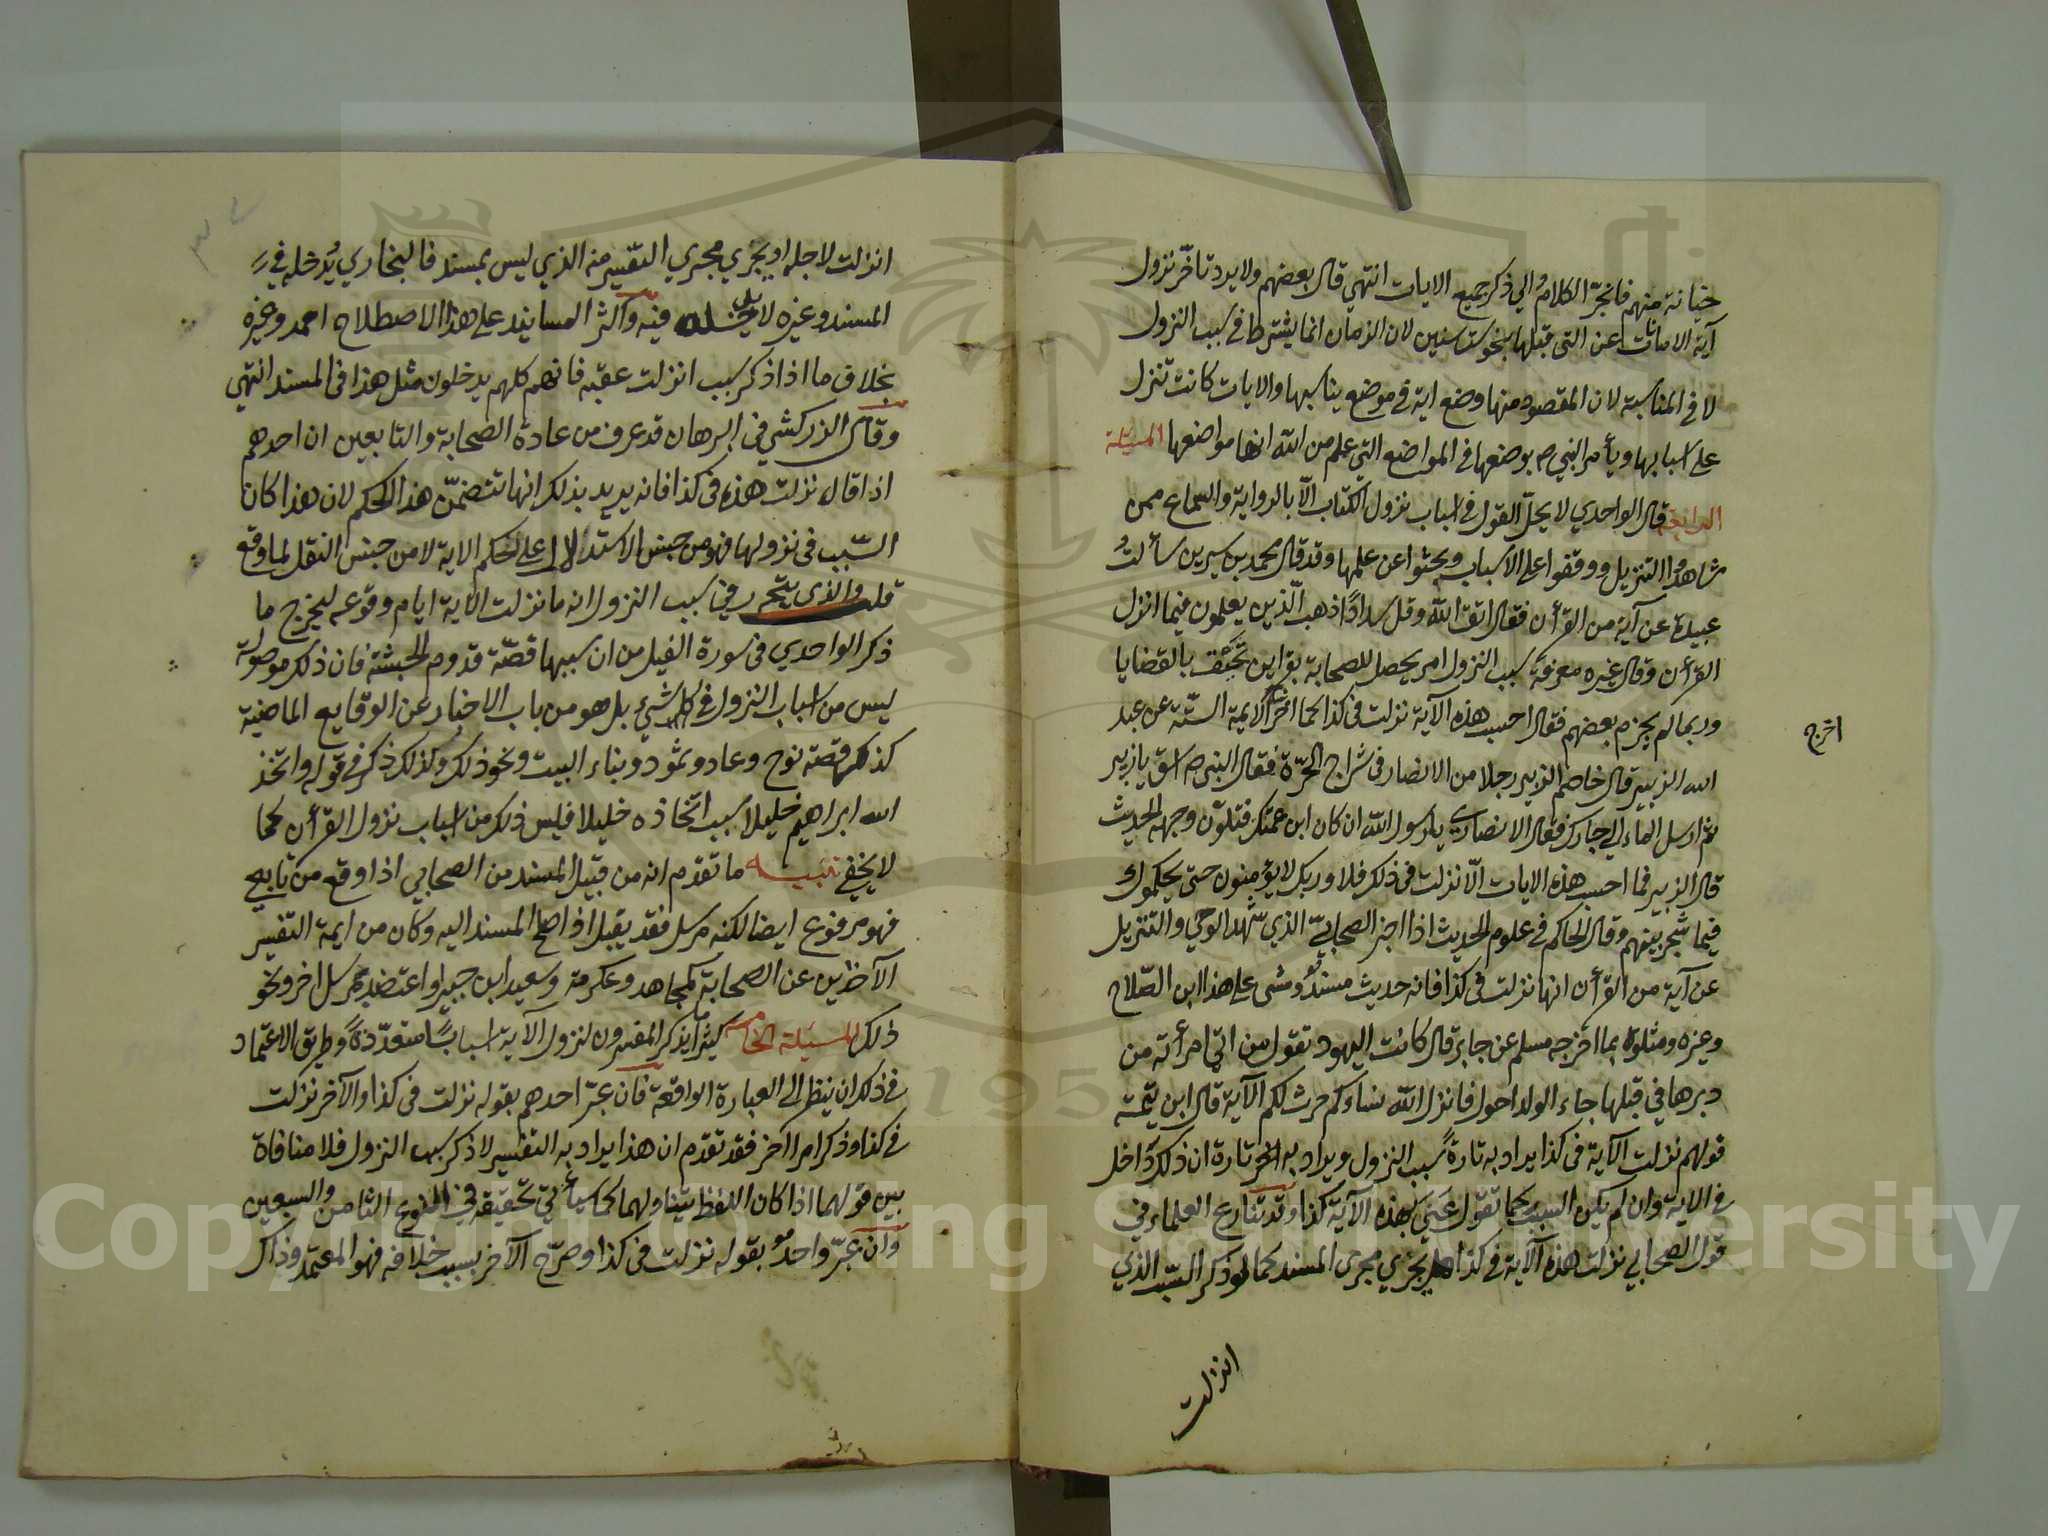 خيانة منهم فانجرّ الكلام الي ذكر جميع الايات انتهي قال بعضهم ولا يرد تاخّر نزول
آية الامانات عن التي قبلها بنحو ست سنين لان الزمان انما يشترط في سبب النزول
لا في المناسبة لان المقصود منها وضع اية في موضع يناسبها والايات كانت تنزل
على اسبابها ويأمر النبي ص بوضعها في المواضع التي علم من الله انها مواضعها المسئلة
الرابعة قال الواحدي لا يحلّ القول في اسباب نزول الكتاب الّا بالرواية والسماع ممن
شاهدوا التنزيل ووقفوا على الاسباب وبحثوا عن علمها وقد قال محمد بن سيرين سألت
عبيدة عن آية من القرأن فقال اتق الله وقل سدادًا ذهب الّذين يعلمون فيما انزل
القرأن وقال غيره معرفة سبب النزول امر يحصل للصحابة بقراين تحتف بالقضايا
وربما لم يجزم بعضهم فقال احسب هذه الآية نزلت في كذا كما اخرج الايمة الستّة عن عبد
اخرج
الله الزبير قال خاصم الزبير رجلا من الانصار في شراج الحرّة فقال النبي ص اسق يا زبير
ثم ارسل الماء الي جارك فقال الانصاري يا رسول الله ان كان ابن عمتك فتلوّن وجهه الحديث
قال الزبير فما احسب هذه الايات الّا نزلت في ذلك فلا وربك لا يؤمنون حتي يحكموك
فيما شجر بينهم وقال الحاكم في علوم الحديث اذا اخبر الصحابيّ الذي شهد الوحي والتنزيل
عن آية من القرأن انها نزلت في كذا فانه حديث مسند ومشى على هذا ابن الصّلاح
وغيره ومثلوه بما اخرجه مسلم عن جابر قال كانت اليهود تقول من اتي امرأته من
دبرها في قبلها جاء الولد احول فانزل الله نساؤكم حرث لكم الآية قال ابن تيمية
قولهم نزلت الآية في كذا يراد به تارةً سبب النزول ويراد به اخر تارة ان ذلك داخل
في الاية وان لم يكن السبب كما تقول عني بهذه الآية كذا وقد تنازع العلماء في
قول الصحابي نزلت هذه الآية في كذا هل يجري مجرى المسند كما لو ذكر السّبب الذي
انزلت
انزلت لاجله او يجري مجري التفسير منه الذي ليس بمسند فالبخاري يُدخله في
المسند وغيره لا يدخله فيه واكثر المسانيد على هذا الاصطلاح احمد وغيره
بخلاف ما اذا ذكر سبب انزلت عقبه فانهم كلهم يدخلون مثل هذا في المسند انتهي
وقال الزركشي في البرهان قد عرف من عادة الصحابة والتابعين ان احدهم
اذا قال نزلت هذه في كذا فانه يريد بذلك انها تتضمّن هذا الحكم لان هذا كان
السّبب في نزولها فهو من جنس الاستدلال على الحكم الاية لا من جنس النقل لما وقع
قلت والذي يتحرر في سبب النزول انه ما نزلت الآية ايام وقوعه ليخرج ما
ذكر الواحدي في سورة الفيل من ان سببها قصّة قدوم الحبشة فان ذلك
ليس من اسباب النزول في شئ بل هو من باب الاخبار عن الوقايع الماضية
كذكر قصة نوح وعاد وثمود وبناء البيت ونحو ذلك وكذلك ذكر في قوله واتخذ
الله ابراهيم خليلا سبب اتخاذه خليلا فليس ذلك من اسباب نزول القرأن كما
لا يخفي تنبيه ما تقدم انه من قبيل المسند من الصحابي اذا وقع من تابعي
فهو مرفوع ايضا لكنه مرسل فقد يقبل اذا صح المسند اليه وكان من ايمة التفسير
الآخذين عن الصحابة كمجاهد وعكرمة وسعيد ابن جبير او اعتضد بمرسل اخر ونحو
ذلك المسئلة الخامسة كثيرا ما يذكر المفسرون لنزول الآية اسبابًا متعدّدةً وطريق الاعتماد
في ذلك ان ينظر الي العبارة الواقعة فان عبّر احدهم بقوله نزلت في كذا والآخر نزلت
في كذا وذكر امرا آخر فقد تقدم ان هذا يراد به التفسير لا ذكر سبب النزول فلا منافاة
بين قولهما اذا كان اللفظ يتناولهما كما سيأتي تحقيقه في النوع الثامن والسبعين
وان عبّر واحد بقوله نزلت في كذا وصرّح الآخر بسبب خلافه فهو المعتمد وذاك
Copyright © King Saud University
1957